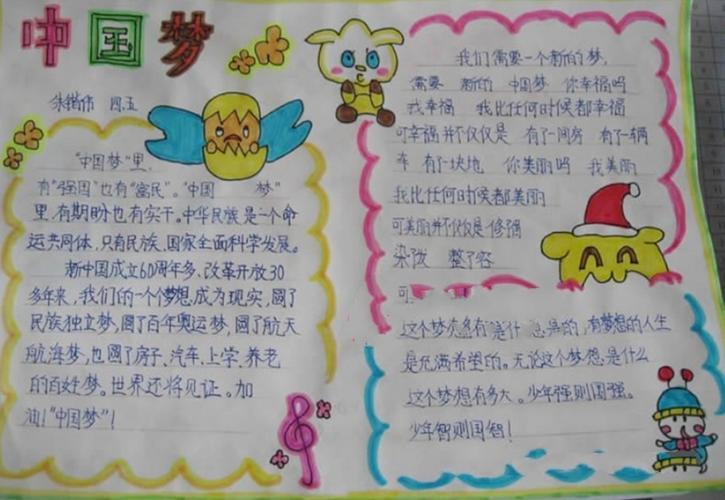 中国梦
四五
"中国梦"里,
有"强国"也有"富民"。"中国 梦"
里,有期盼也有实干。中华民族是一个命
运共同体,只有民族、国家全面科学发展。
新中国成立60周年多、改革开放30
多年来,我们的一个个梦想成为现实,圆了
民族独立梦,圆了百年奥运梦,圆了航天
航海梦,也圆了房子、汽车、上学、养老
的百姓梦。世界还将见证。加
油!"中国梦"!
我们需要一个新的梦,
需要 新的 中国梦 你幸福吗
我幸福 我比任何时候都幸福
可幸福并不仅仅是 有了一间房 有了一辆
车 有了一块地 你美丽吗 我美丽
我比任何时候都美丽
可美丽并不仅仅是修强
染陇 整了容
可
这个梦 有 是什 的,有梦想的人生
是充满希望的。无说这个梦想是什么
这个梦想有多大。少年强则国强。
少年智则国智!